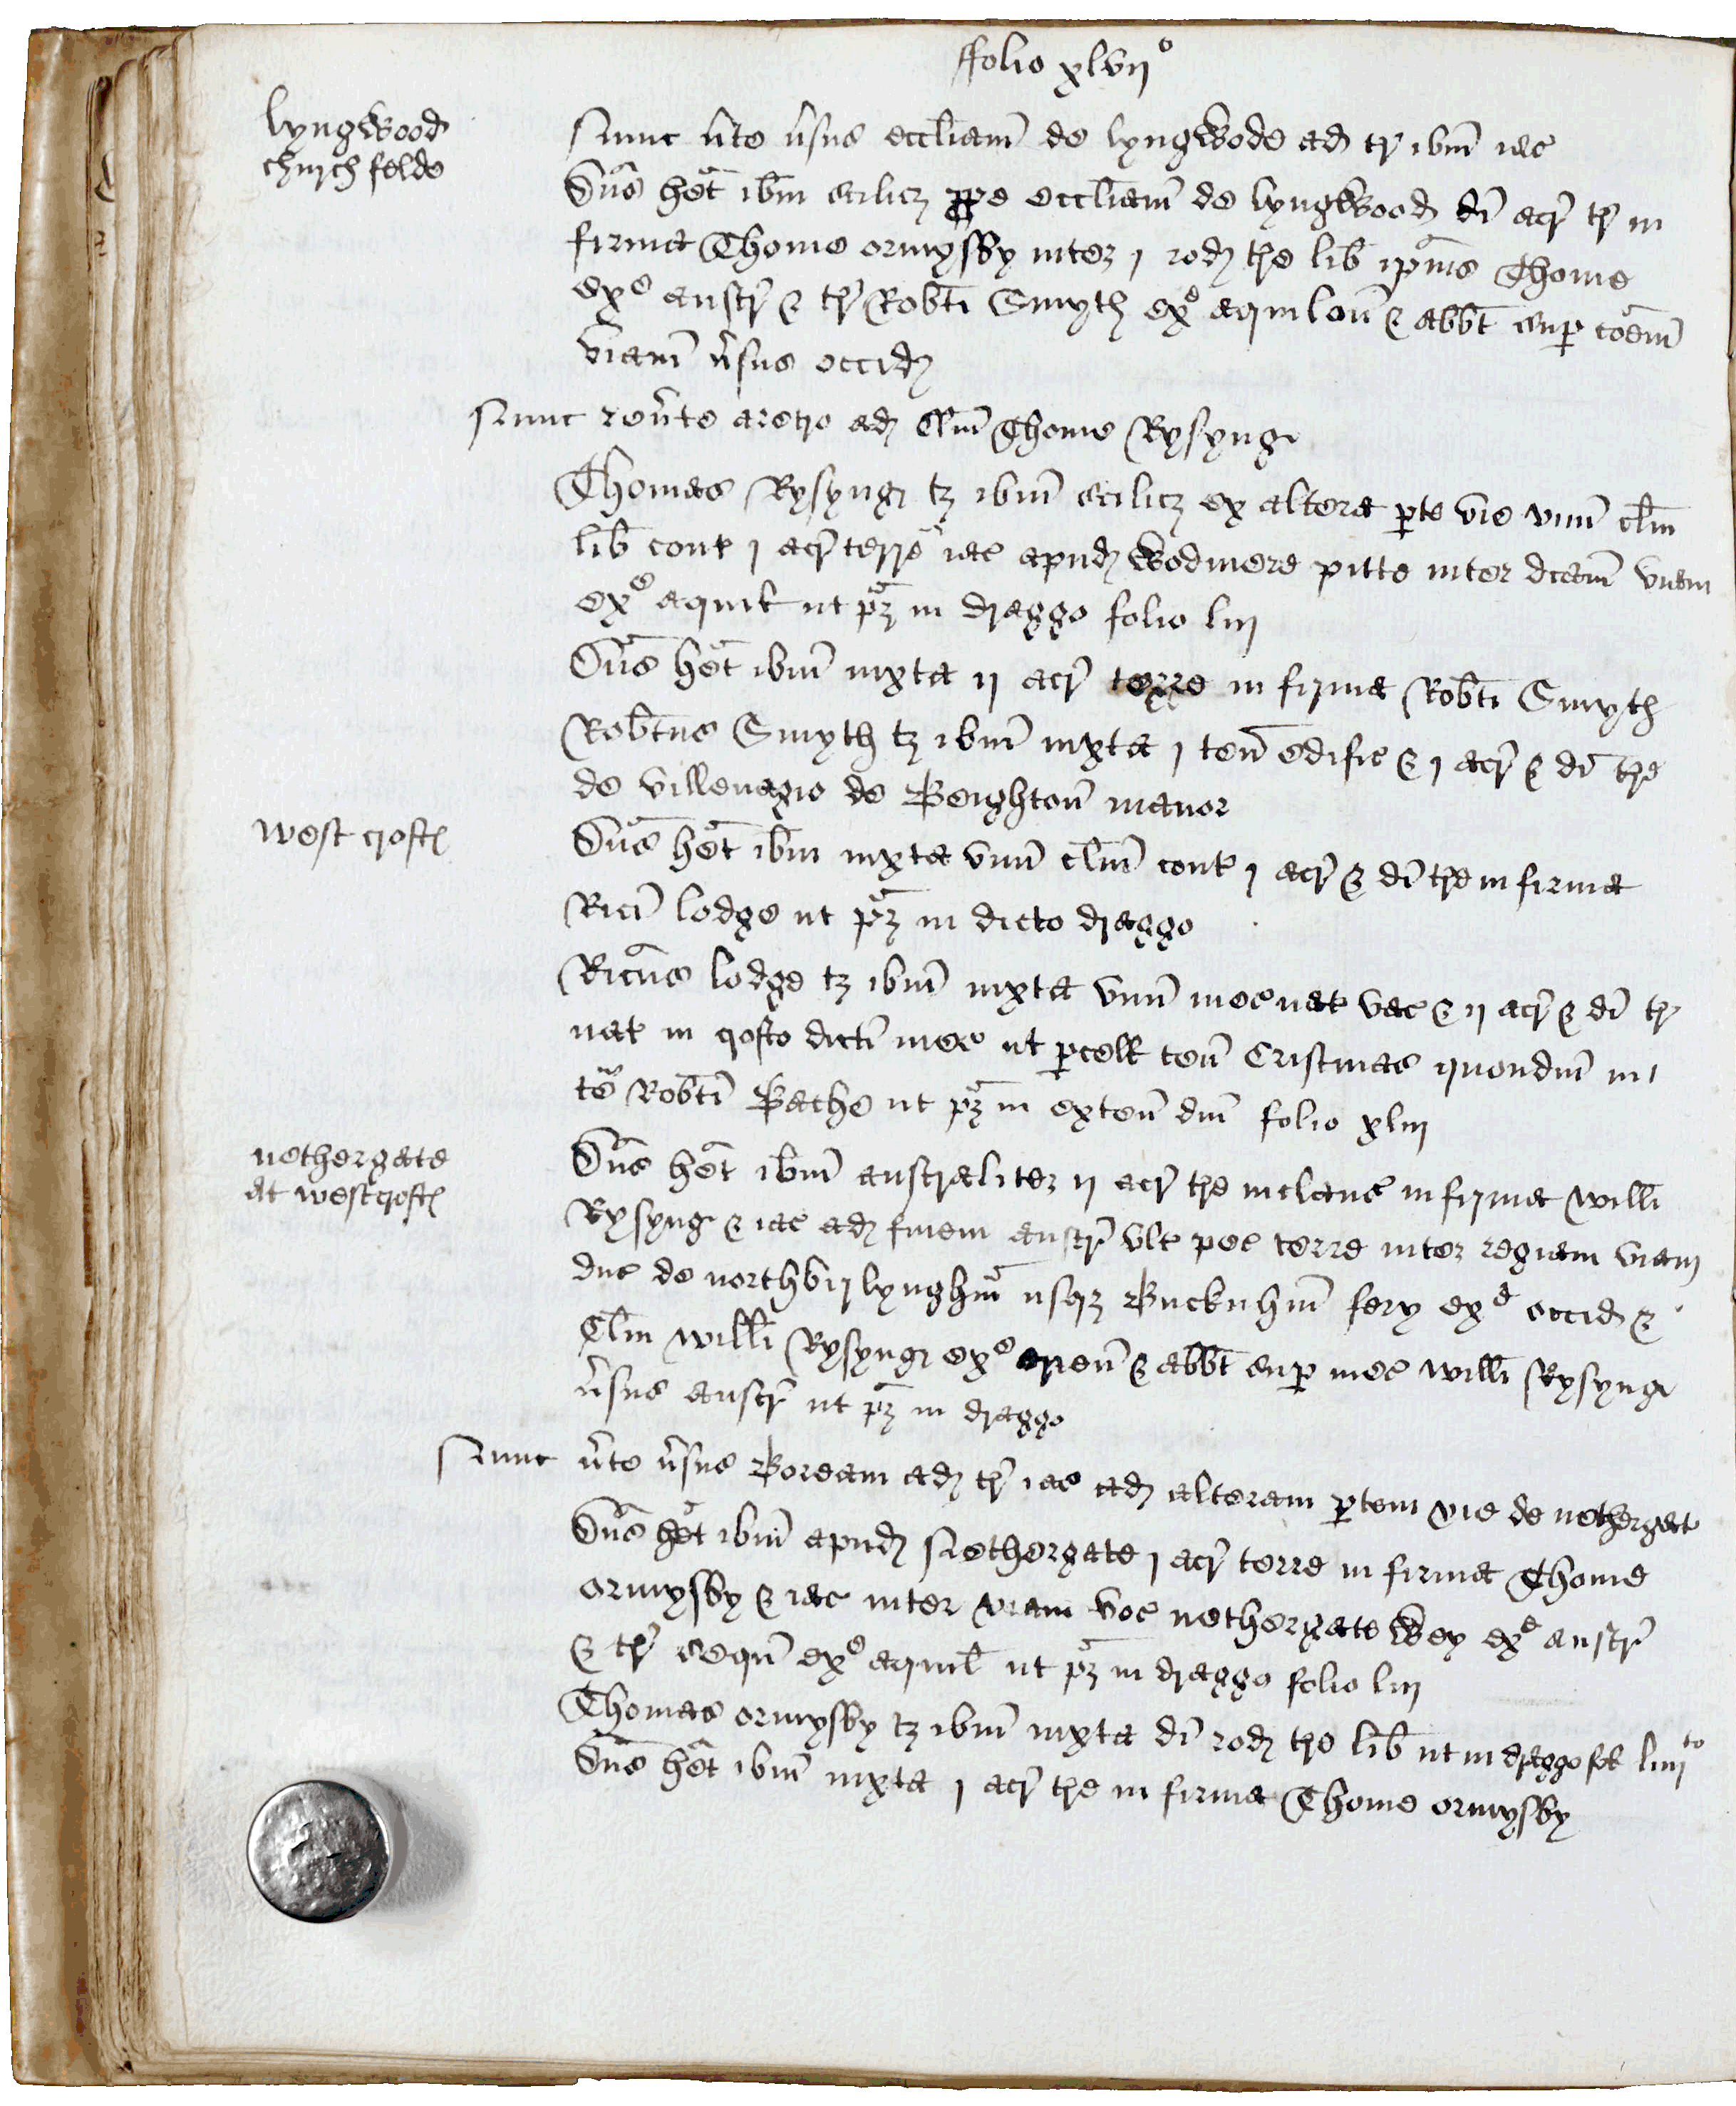 ffolio xlvij°
lyngwood
chyrch felde
Nunc v̄te v̄sus eccl̄iam̄ de lyngwode ad tr̄ ibm̄ iac
Dn̄s het̄ ibm̄ scilicꝫ ꝓpe eccl̄iam̄ de lyngwood di acr̄ tr̄ in
firma Thome ormysby inter j rod tr̄e lib̄ ip̄ius Thome
exᵉ austr̄ & tr̄ Rob̄ti Smyth exᵉ aquilon̄ & abb̄t suꝑ coem̄
viam̄ v̄sus occid
Nunc rev̄te aretro ad Cl̄m Thome Rysyng
Thomas Rysyng tꝫ ibm̄ scilicꝫ ex altera ꝑte vie vnu̅ cl̄m
lib̄ cont j acr̄ terre iac apud wodmere pitte inter dc̄am̄ viam
exᵉ aquil ut pꝫ in draggo folio liij
Dn̄s het̄ ibm̄ iuxta ij acr̄ terre in firma Rob̄ti Smyth
Rob̄tus Smyth tꝫ ibm̄ iuxta j ten̄ edific & j acr̄ & di tr̄e
de villenagio de Beighton̄ manor
west croft
Dn̄s het̄ ibm̄ iuxta vnu̅ cl̄m cont j acr̄ & di tr̄e in firma
Rici lodge ut pꝫ in dicto draggo
Ricūs lodge tꝫ ibm̄ iuxta vnu̅ mesuat vac & ij acr̄ & di tr̄
nat in crofto dicti mes ut ꝑcell ten̄ Cristmas quondm̄ in
te Rob̄ti Bache ut pꝫ in exten̄ dm̄ folio xliij
nethergate
at westcroft
Dn̄s het̄ ibm̄ australiter ij acr̄ tr̄e inclaus in firma Will̄i
Rysyng & iac ad finem austr̄ vlt pec terre inter regiam viam
duc de northbirlyngham̄ usqꝫ Bucknhm̄ fery exᵉ occid &
Cl̄m Will̄i Rysyng exᵉ orien̄ & abb̄t suꝑ mes Will̄i Rysyng
v̄sus austr̄ ut pꝫ in draggo
Nunc v̄te v̄sus Boream ad tr̄ iac ad alteram ꝑtem vie de nethergat
Dn̄s het̄ ibm̄ apud Nethergate j acr̄ terre in firma Thome
ormysby & iac inter viam voc nethergate wey exᵉ austr̄
& tr̄ sequn̄ exᵉ aquil̄ ut pꝫ in draggo folio liij
Thomas ormysby tꝫ ibm̄ iuxta di rod tr̄e lib̄ ut in draggo fol liiijᵗᵒ
Dn̄s het̄ ibm̄ iuxta j acr̄ tr̄e in firma Thome ormysby